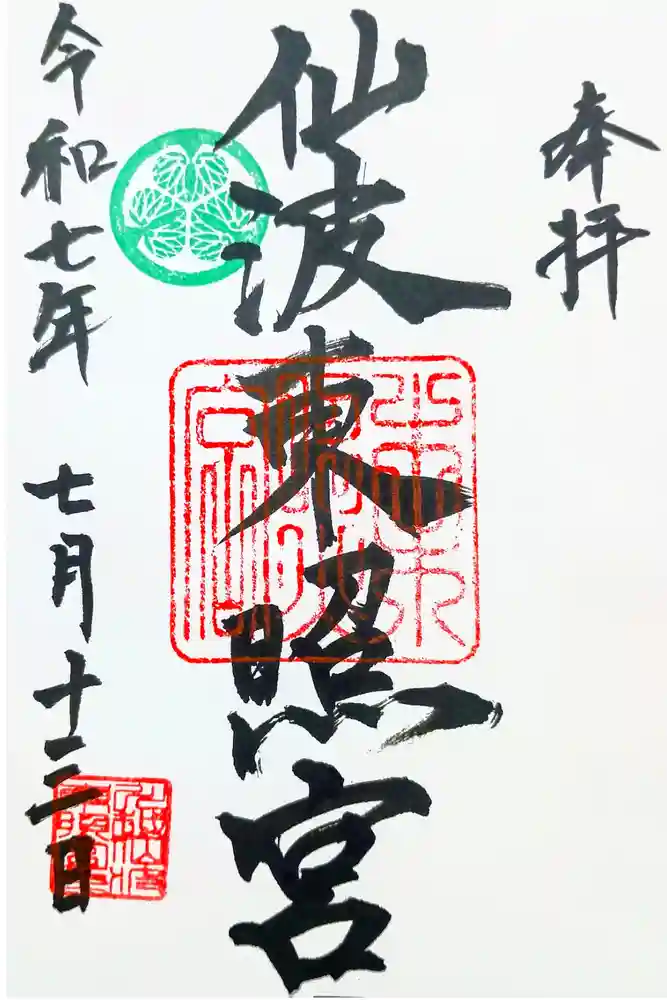 奉拝
仙波東照宮
令和七年 七月十三日